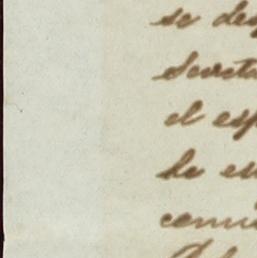 se des
Secreta
el esp
de es
comu